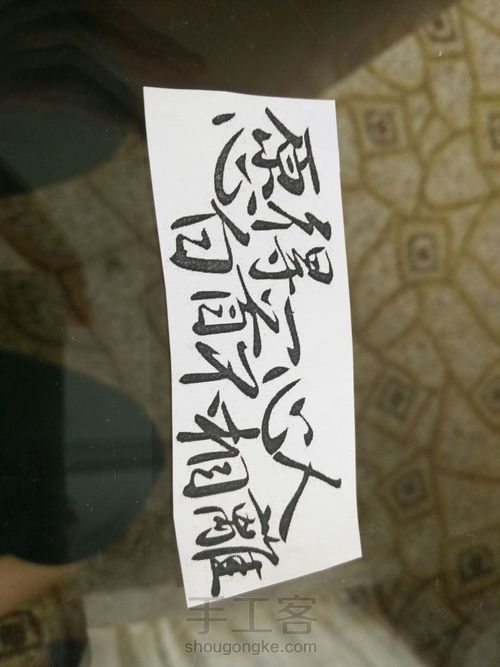 愿得一心人
白首不相離
手工客
shougongke.com